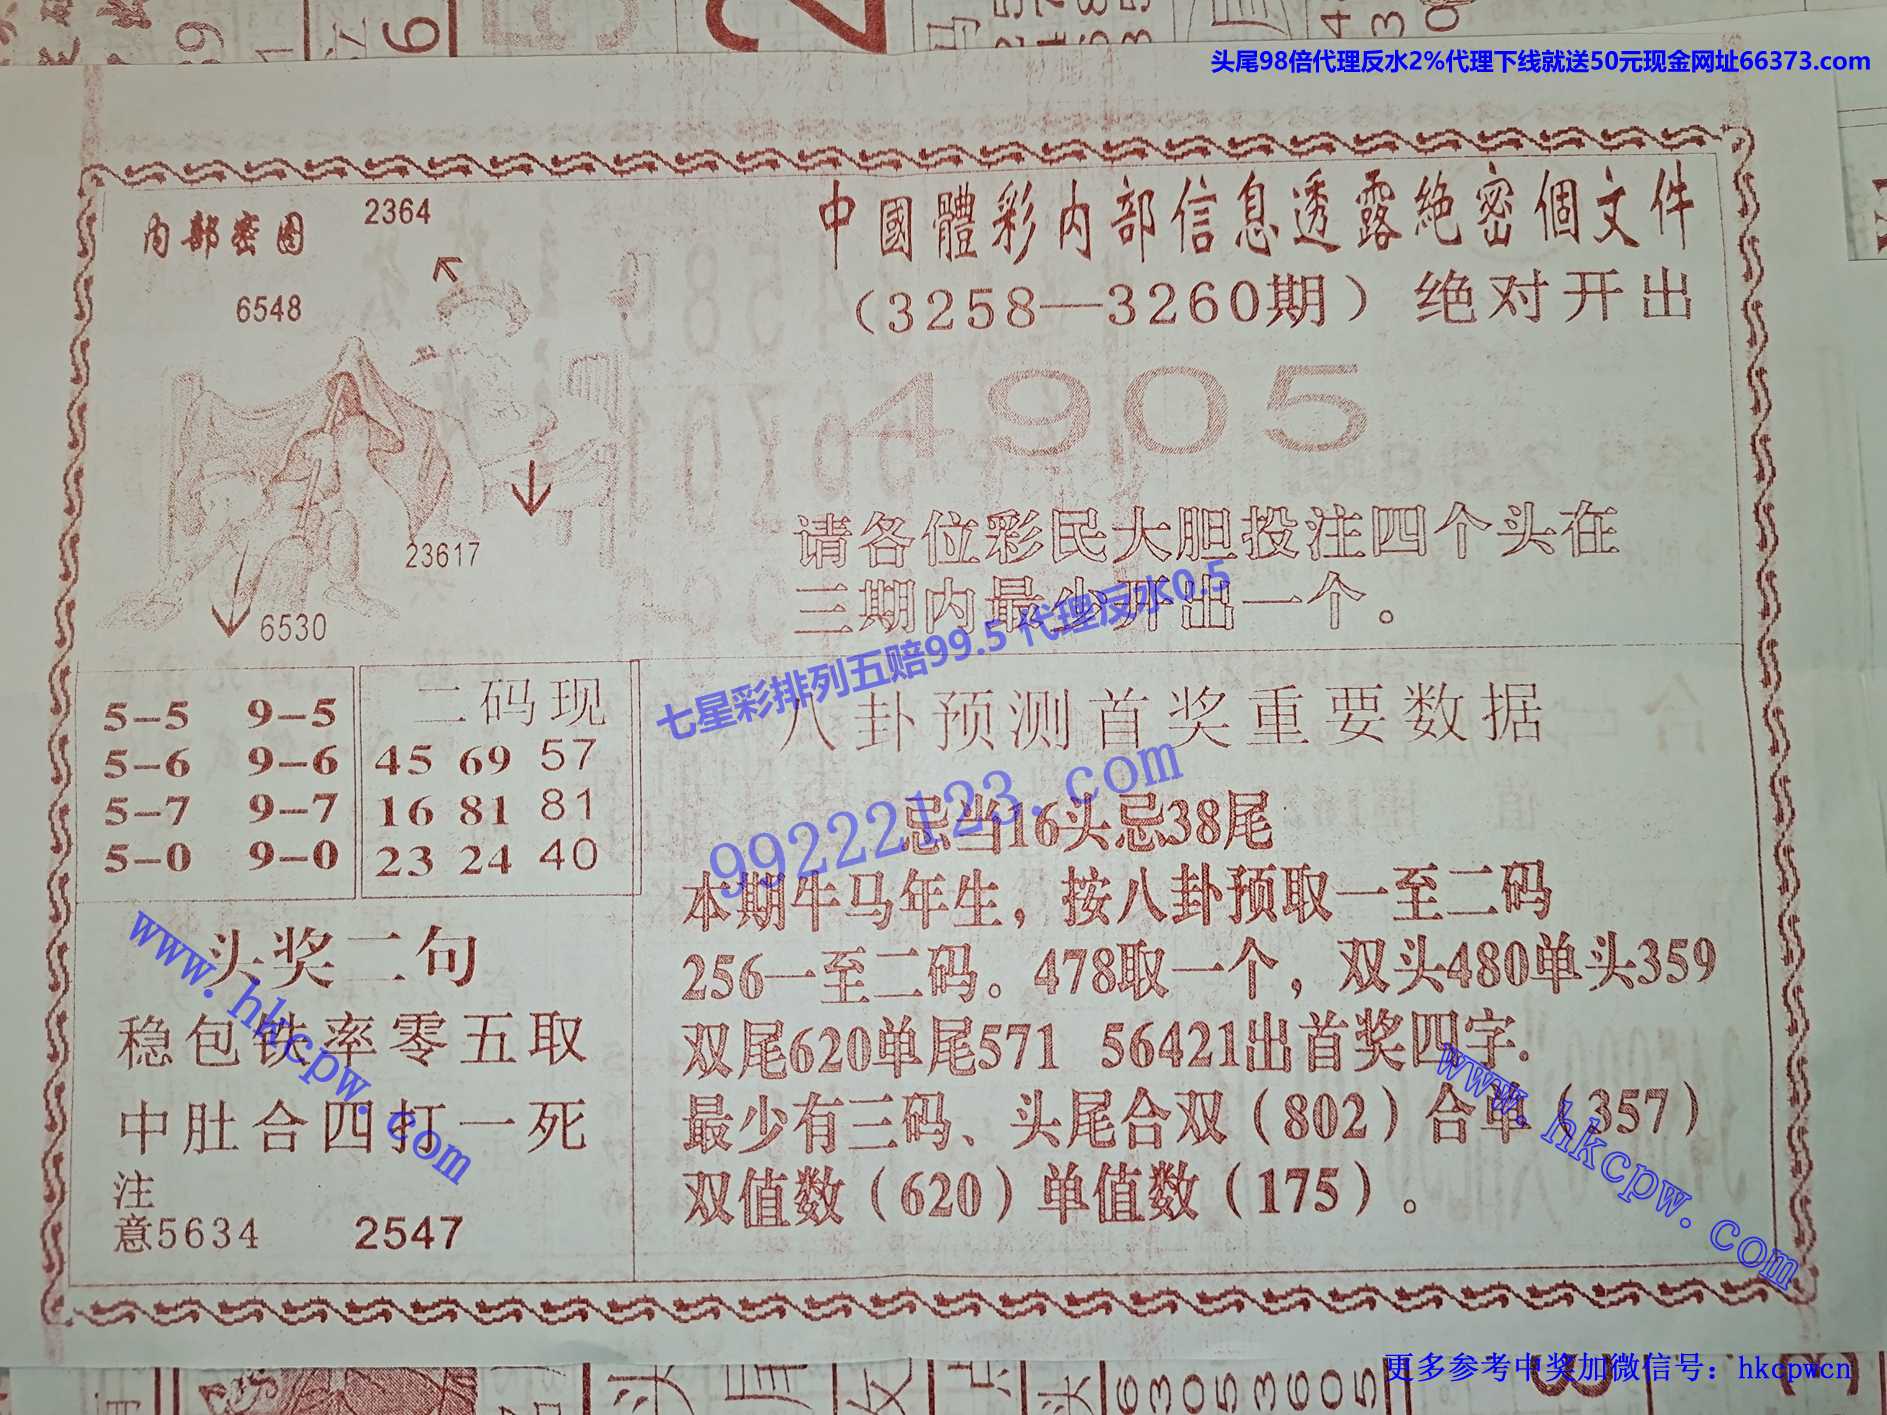 头尾98倍代理反水2%代理下线就送50元现金网址66373.com
内部密图
2364
6548
23617
6530
中國體彩内部信息透露絶密個文件
（3258—3260期）绝对开出
4905
请各位彩民大胆投注四个头在
三期内最少开出一个。
七星彩排列五赔99.5 代理反水0.5
99222123.com
5-5 9-5
5-6 9-6
5-7 9-7
5-0 9-0
二码现
45 69 57
16 81 81
23 24 40
八卦预测首奖重要数据
忌当16头忌38尾
本期牛马年生，按八卦预取一至二码
256一至二码。478取一个，双头480单头359
双尾620单尾571 56421出首奖四字.
最少有三码、头尾合双（802）合单（357）
双值数（620）单值数（175）。
头奖二句
稳包铁率零五取
中肚合四打一死
注
意5634 2547
www.hkcpw.com
www.hkcpw.com
更多参考中奖加微信号：hkcpwcn